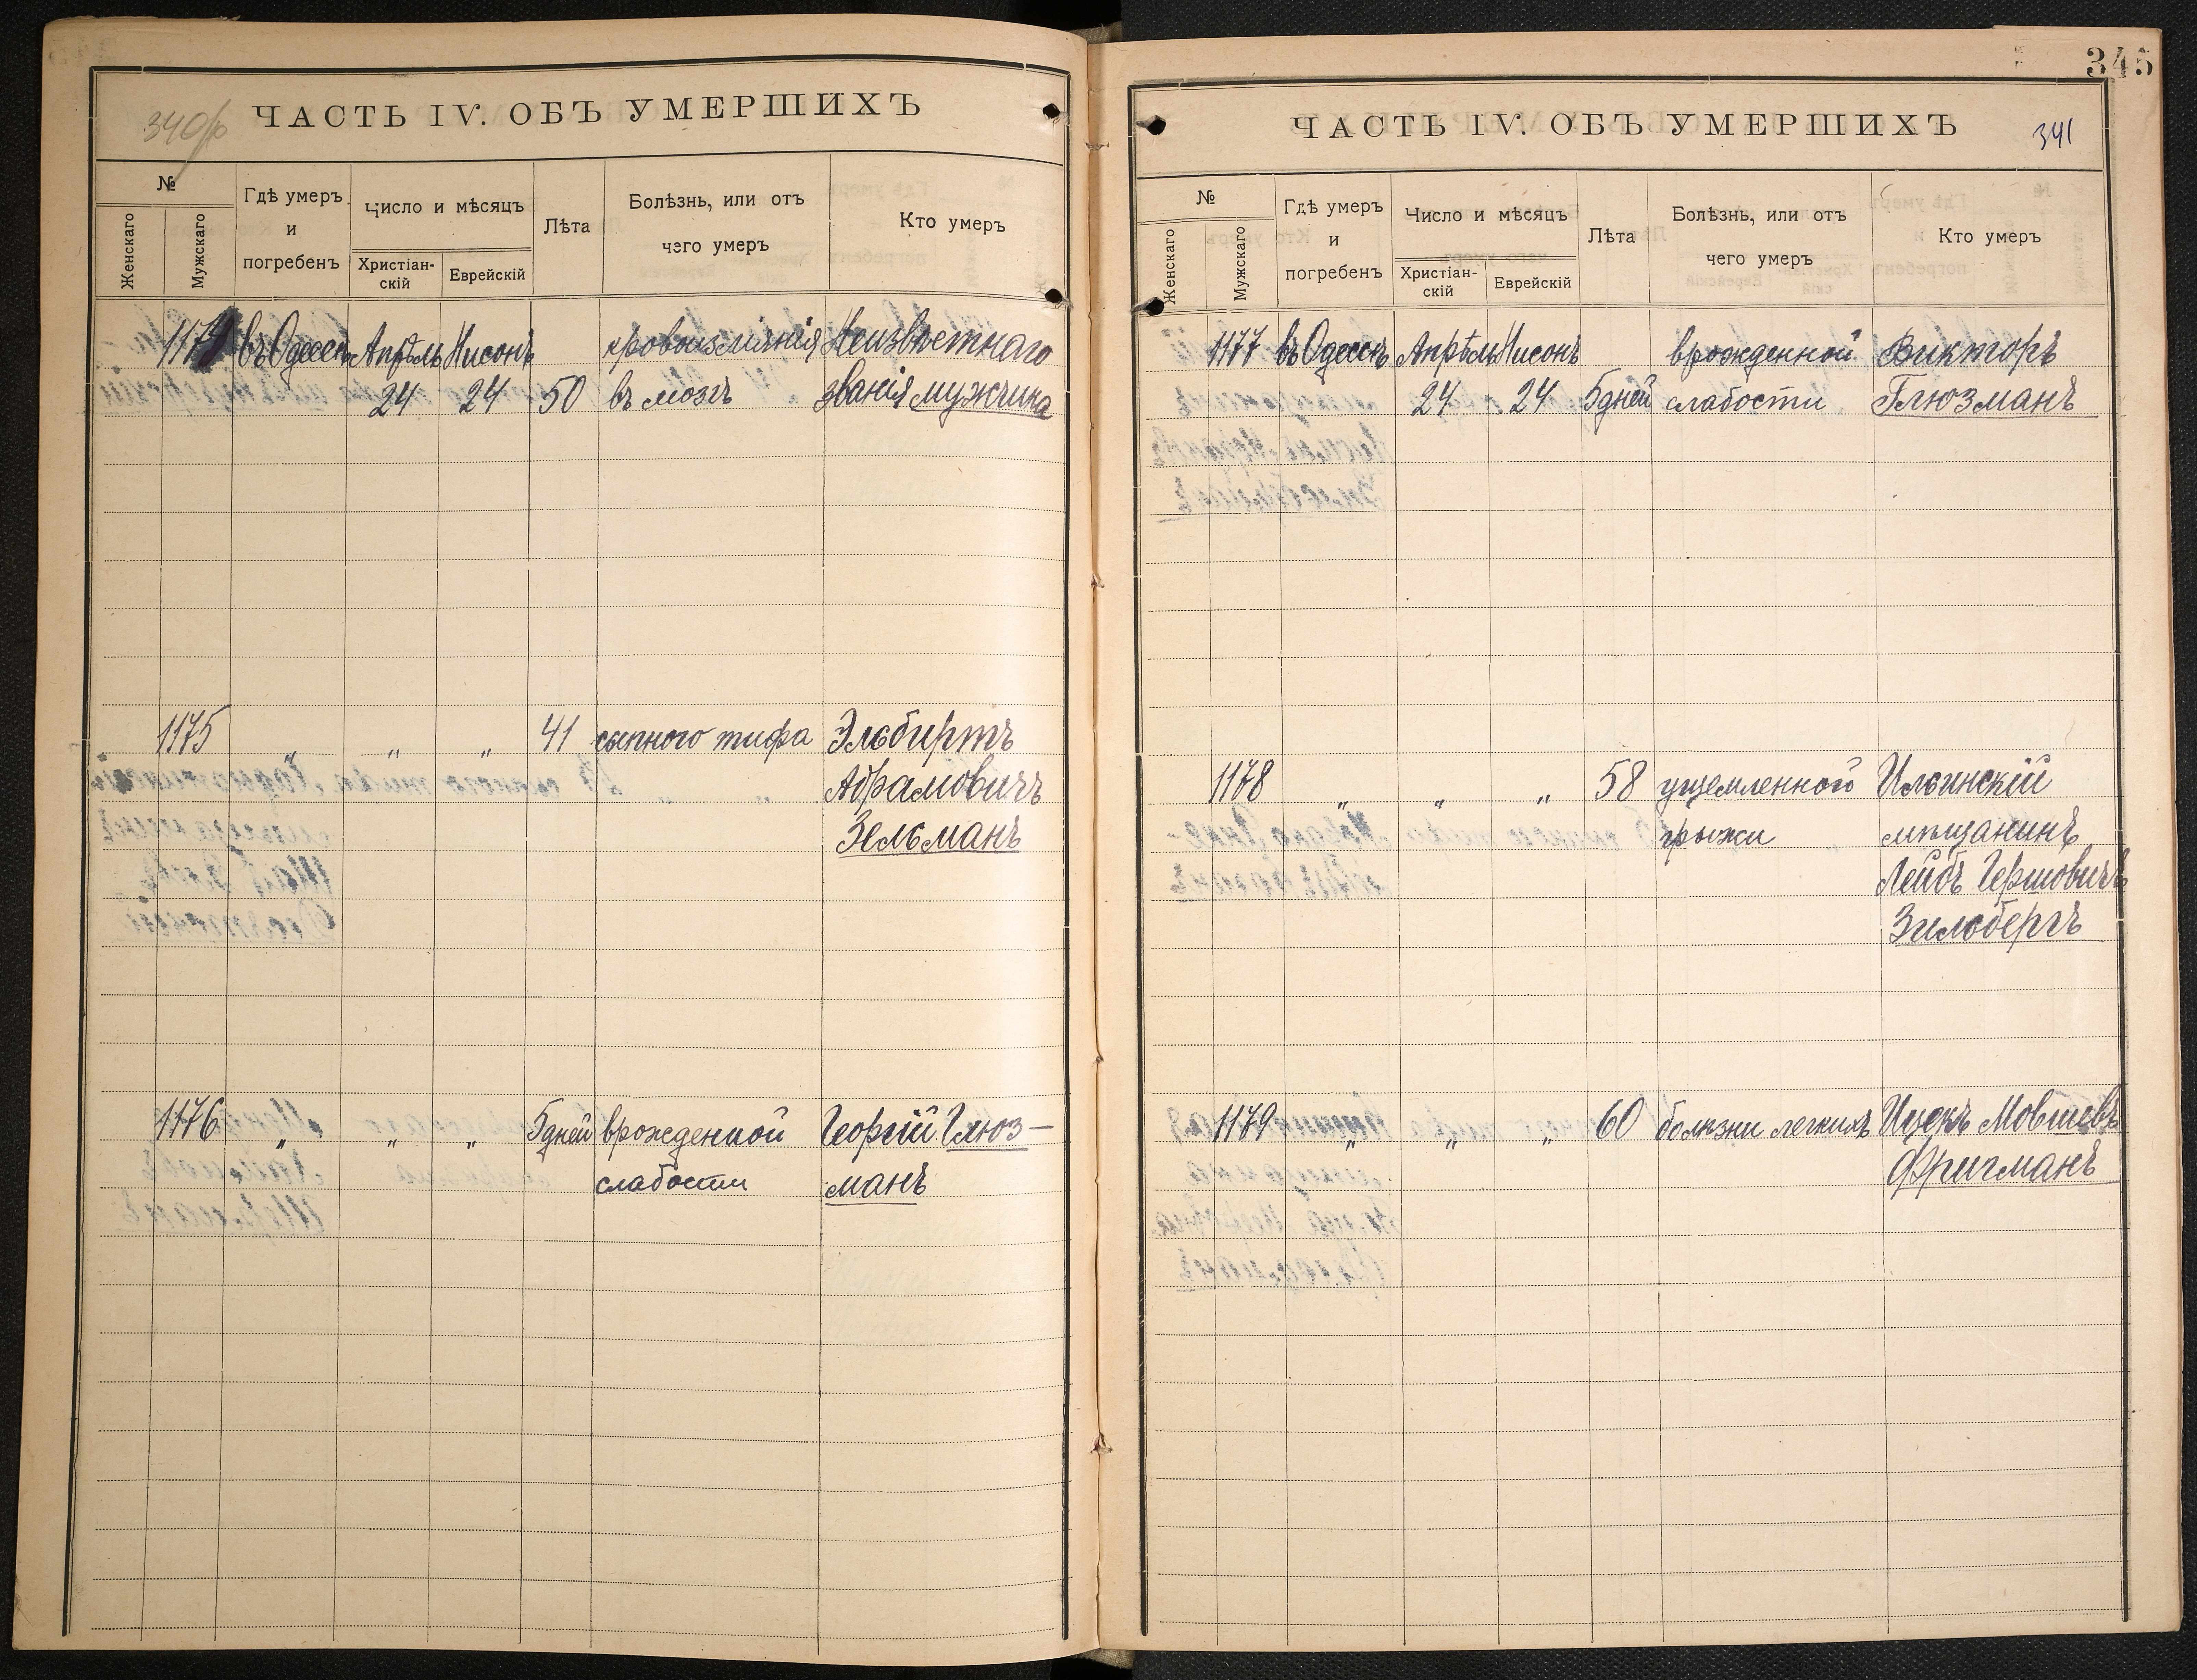 340об
ЧАСТЬ IV. ОБЪ УМЕРШИХЪ
№
Женскаго
Мужскаго
Гдѣ умеръ
и
погребенъ
Число и мѣсяцъ
Христіан-
скій
Еврейскій
Лѣта
Болѣзнь, или отъ
чего умеръ
Кто умеръ
1174 въ Одессѣ Апрѣль Нисонъ кровоизліянія Неизвѣстнаго
24 24 50 въ мозгъ званія мужчина
1175 " " " 41 сыпного тифа Эльбиртъ
Абрамовичъ
Зельманъ
1176 " " " 5 дней врожденной Георгій Глюз-
слабости манъ
345
ЧАСТЬ IV. ОБЪ УМЕРШИХЪ
341
№
Женскаго
Мужскаго
Гдѣ умеръ
и
погребенъ
Число и мѣсяцъ
Христіан-
скій
Еврейскій
Лѣта
Болѣзнь, или отъ
чего умеръ
Кто умеръ
1177 въ Одессѣ Апрѣль Нисонъ врожденной Викторъ
24 24 5 дней слабости Глюзманъ
1178 " " " 58 ущемленной Ильинскій
грыжи мѣщанинъ
Лейбъ Гершовичъ
Зильбергъ
1179 " " " 60 болѣзни легкихъ Ицекъ Мовшевъ
Фригманъ